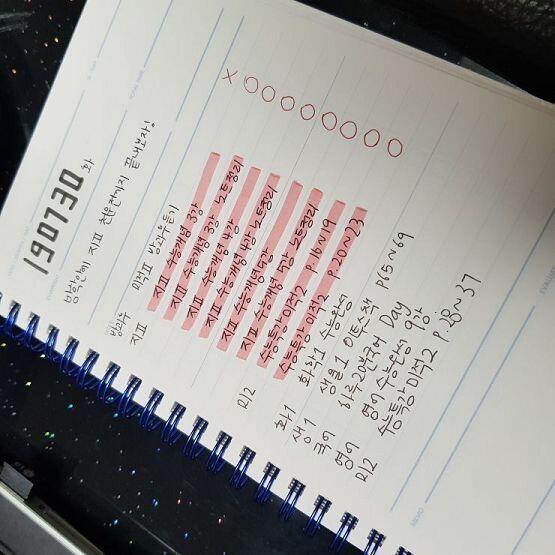 190730 화
방학안에 지표 천문전까지 끝내보자!
방과후 미적표 방과후듣기 X
지표 지표 수능개념 3강 O
지표 수능개념 3강 노트정리 O
지표 수능개념 4강 O
지표 수능개념 4강 노트정리 O
지표 수능개념 5강 O
지표 수능개념 5강 노트정리 O
미2 수능특강 미적2 P.16~19 O
수능특강 미적2 P.20~23 O
화1 화학1 수능완성
생1 생물1 P65~69
국어 하루 20분국어 Day
영어 영어 수능완성 9강
미2 수능특강 미적2 P.28~37
MEMO